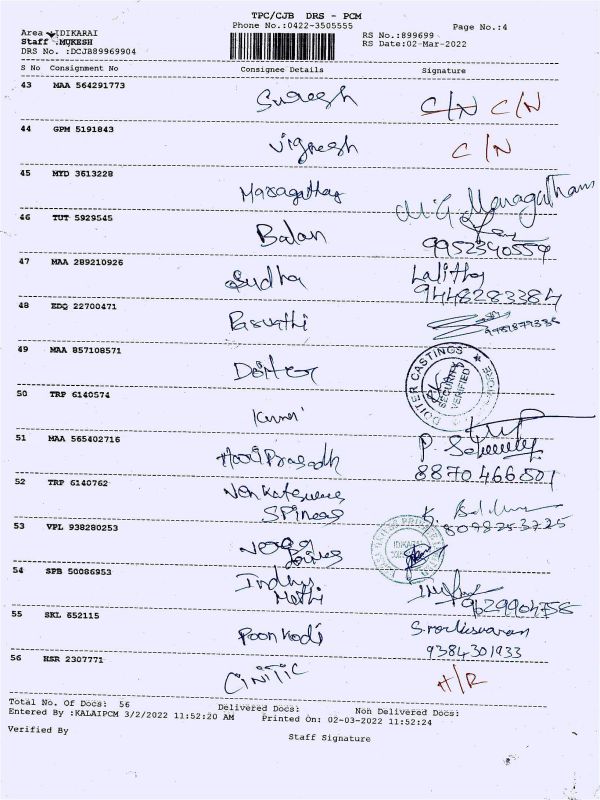 TPC/CJB DRS - PCM
Phone No.:0422-3505555
Page No.:4
Area :IDIKARAI
Staff :MUKESH
DRS No. :DCJB89969904
RS No.:899699
RS Date:02-Mar-2022
S No Consignment No Consignee Details Signature
43 MAA 564291773 Suresh C/N C/N
44 GPM 5191843 Vignesh C/N
45 MYD 3613228 Maragatham M.G Maragatham
46 TUT 5929545 Balan 9952340559
47 MAA 289210926 Sudha Lalitha
9448283384
48 EDQ 22700471
49 MAA 857108571 Doiter DOITER CASTINGS SECURITY VERIFIED
50 TRP 6140574 Kumar
51 MAA 565402716 Hari Prasadh P
8870466801
52 TRP 6140762 Venkateswara
Spinners
8098253225
53 VPL 938280253 IDIKARAI
54 SPB 50086953 Indhu
Mathi
9629904758
55 SKL 652115 Poonkodi
9384301933
56 HSR 2307771 CINITIC H/R
Total No. Of Docs: 56 Delivered Docs: Non Delivered Docs:
Entered By :KALAIPCM 3/2/2022 11:52:20 AM Printed On: 02-03-2022 11:52:24
Verified By
Staff Signature